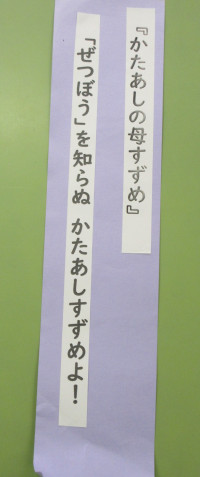 『かたあしの母すずめ』
「ぜつぼう」を知らぬ かたあしすずめよ！